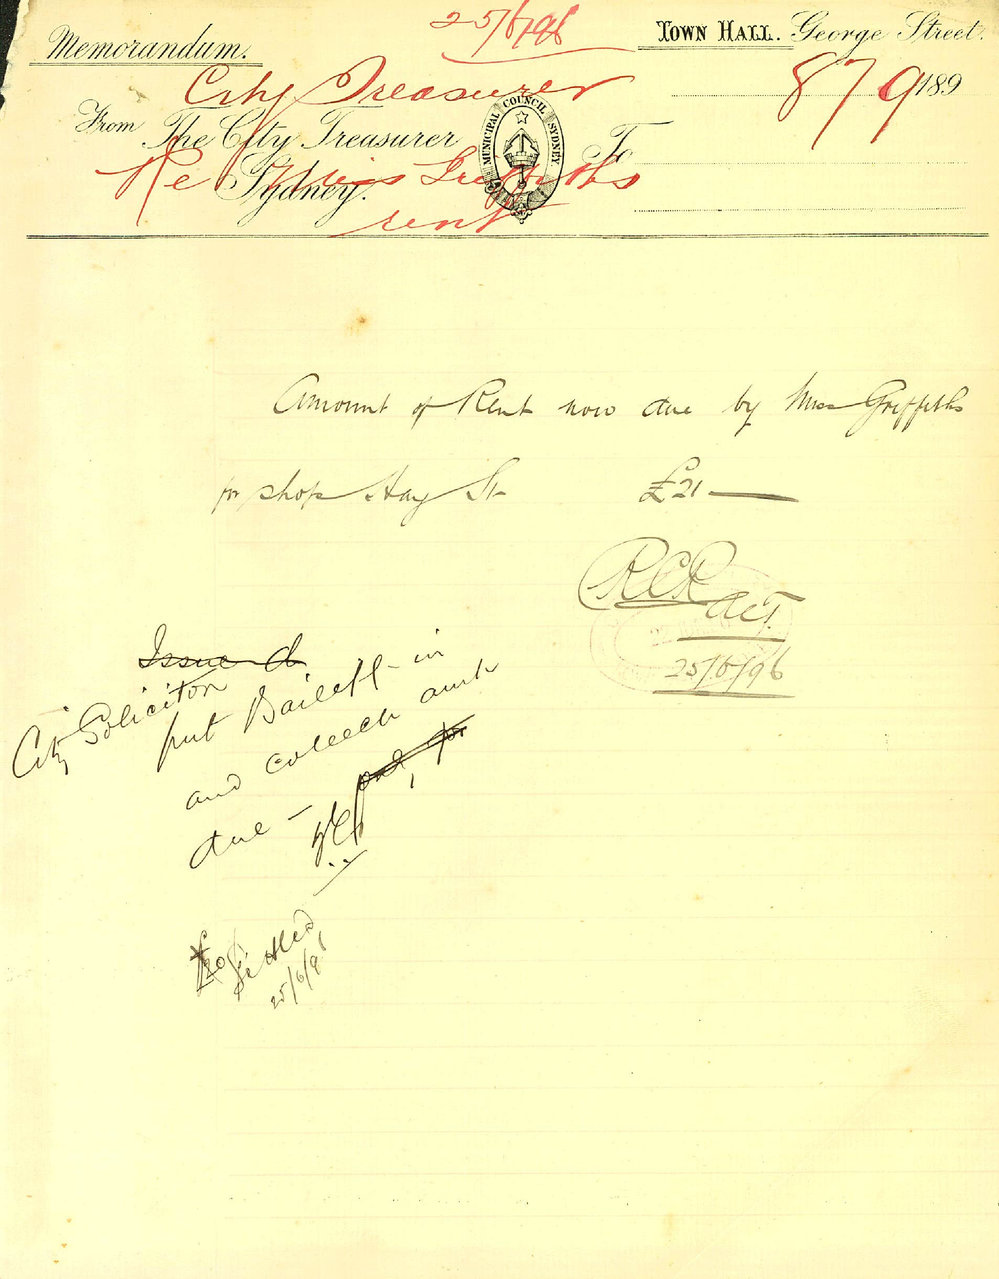 25/6/96
Memorandum.
Town Hall. George Street.
City Treasurer
879
189
From The City Treasurer
Sydney.
MUNICIPAL COUNCIL SYDNEY
To
Re Miss Griffiths
rent
Amount of Rent now due by Miss Griffiths
for shop Hay St £21
RCR
Act.
25/6/96
Issue d
City Solicitor
put Bailiff in
and collect amt
due –
Settled
25/6/96